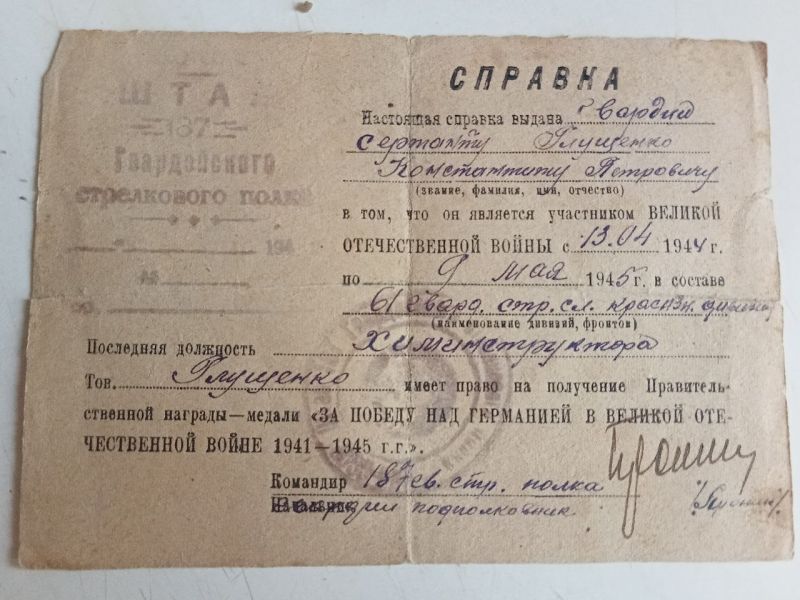 ШТА
187
Гвардейского
стрелкового полка
194
СПРАВКА
Настоящая справка выдана Гвардии
сержанту Глущенко
Константину Петровичу
(звание, фамилия, имя, отчество)
в том, что он является участником ВЕЛИКОЙ
ОТЕЧЕСТВЕННОЙ ВОЙНЫ с 13.04 1944 г.
по 9 мая 1945 г. в составе
61 гвард. стр. сл. краснзн. дивизии
(наименование дивизий, фронтов)
Последняя должность Химинструктора
Тов. Глущенко имеет право на получение Правитель-
ственной награды—медали «ЗА ПОБЕДУ НАД ГЕРМАНИЕЙ В ВЕЛИКОЙ ОТЕ-
ЧЕСТВЕННОЙ ВОЙНЕ 1941—1945 г.г.».
Командир 187 гв. стр. полка
Гвардии подполковник